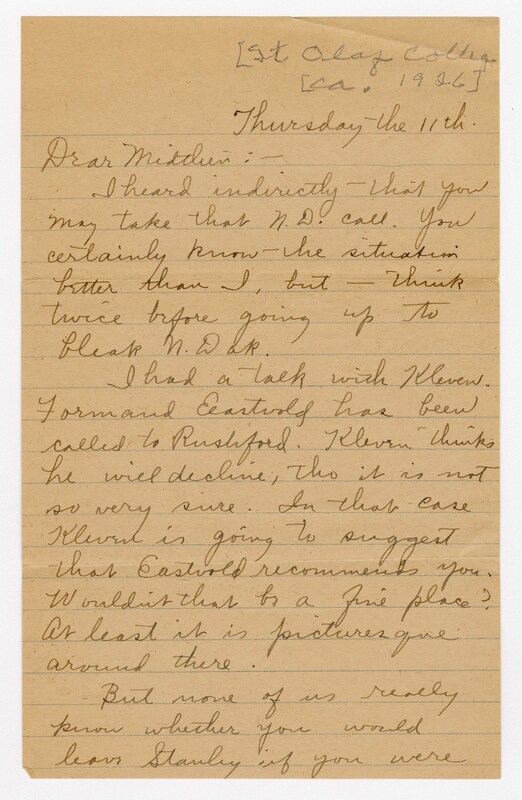 [St Olaf College
[ca. 1926]
Thursday the 11th.
Dear Midthun:-
I heard indirectly that you
may take that N.D. call. You
certainly know the situation
better than I, but — think
twice before going up to
bleak N. Dak.
I had a talk with Kleven.
Formand Eastvold has been
called to Rushford. Kleven thinks
he will decline, tho it is not
so very sure. In that case
Kleven is going to suggest
that Eastvold recommends you.
Wouldn't that be a fine place?
At least it is picturesque
around there.
But none of us really
know whether you would
leave Stanley if you were